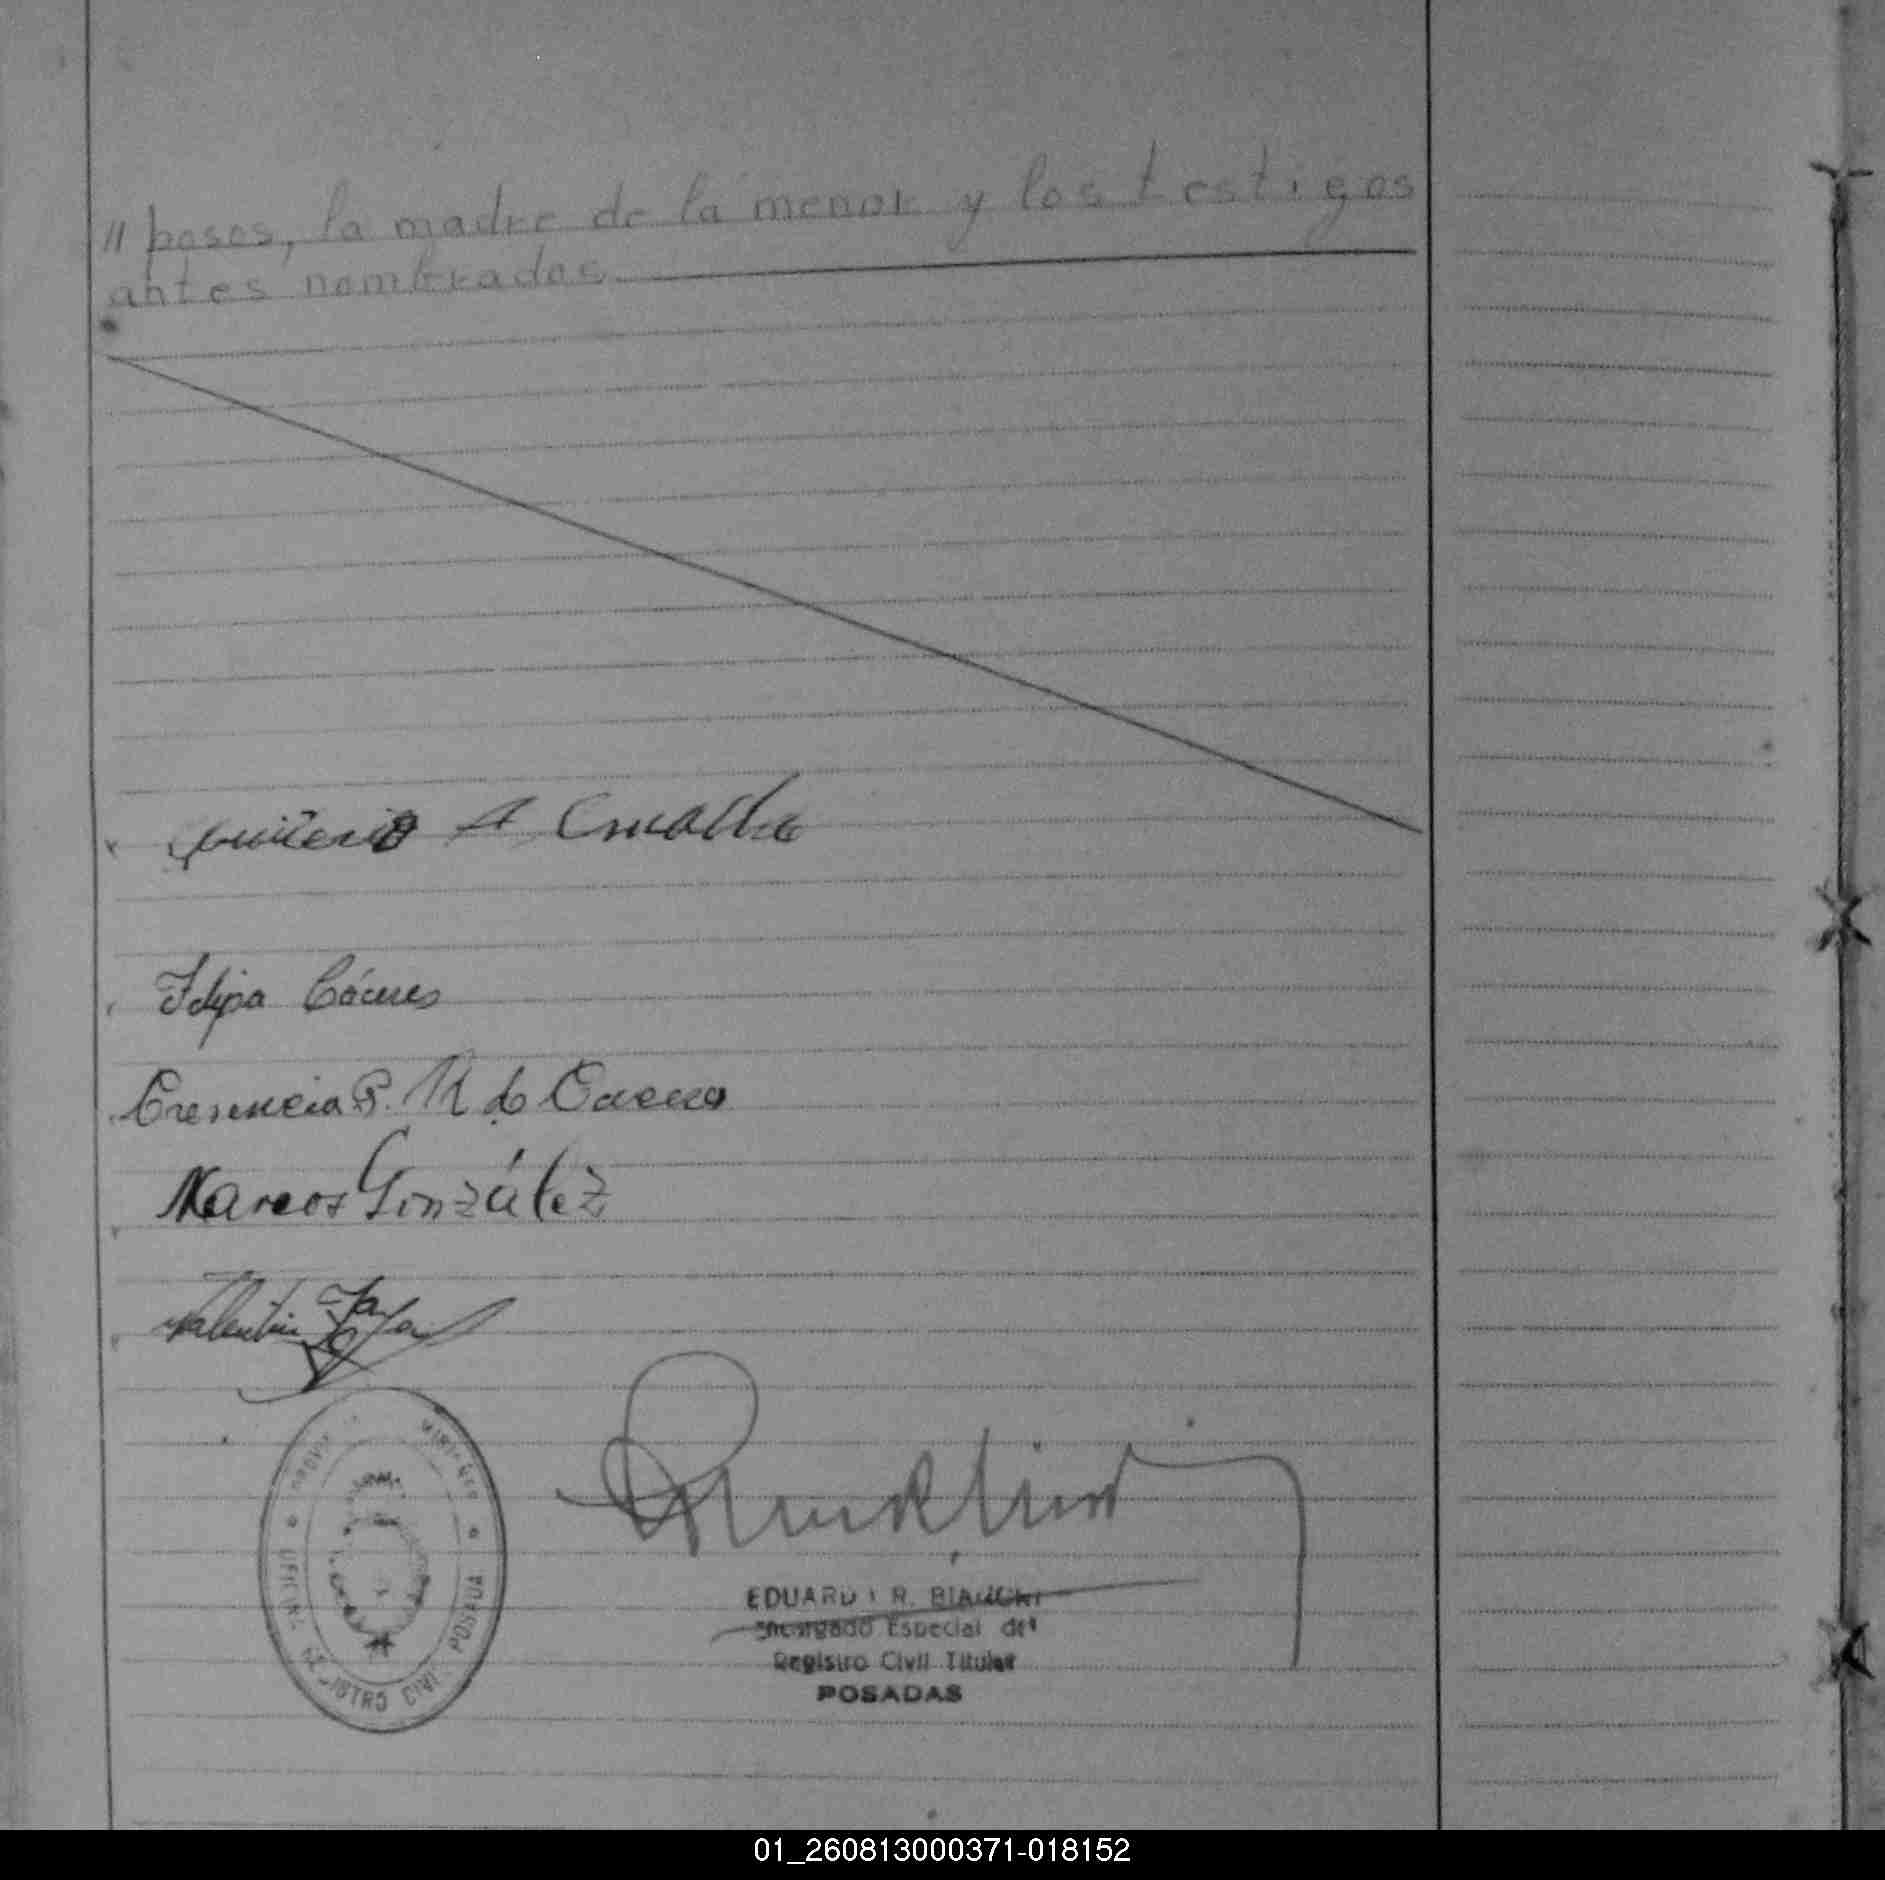 // posos, la madre de la menor y los testigos
antes nombrados
A
Felipa Cáceres
Cresencia R. de
Marcos González
Valentin
MISIONES
OFICINA REGISTRO CIVIL POSADA
EDUARDO R. BIANCHI
Encargado Especial del
Registro Civil Titular
POSADAS
01_260813000371-018152